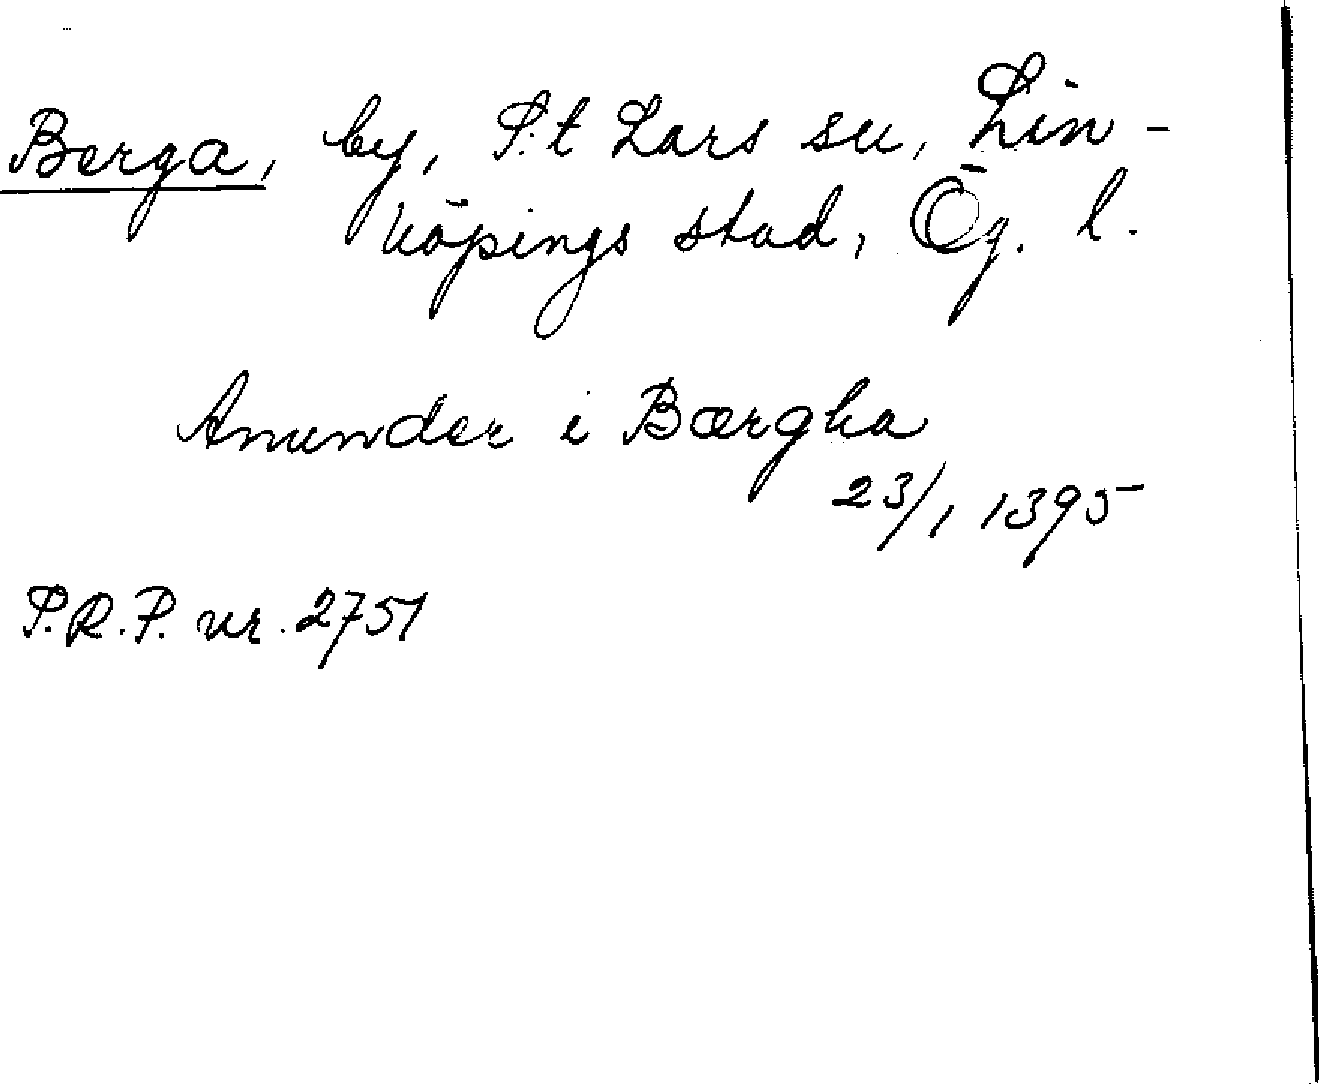 Berga, by, S:t Lars sn, Lin-
köpings stad, Ög. l.
Amunder i Bærgha
23/1 1395
P.R.P. nr. 2751